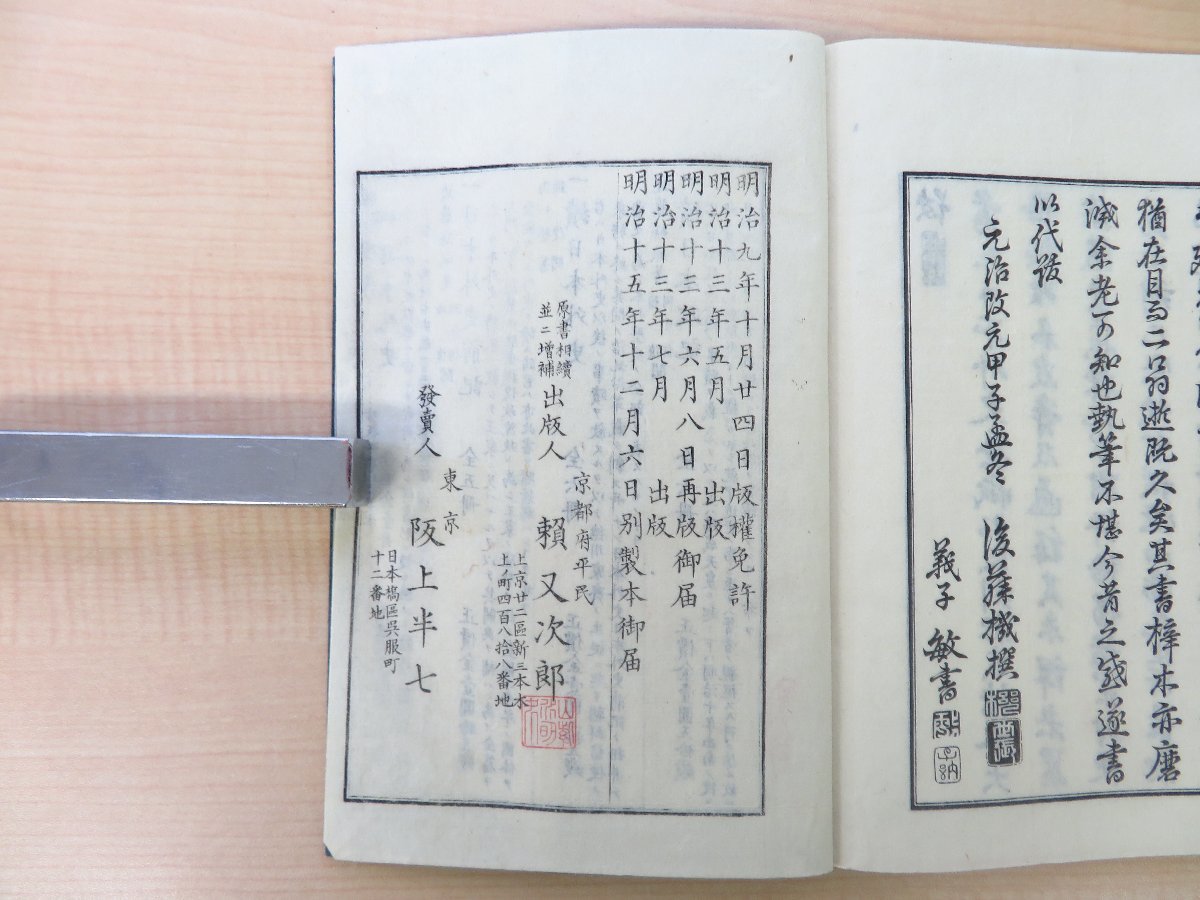 猶在目而二公逝既久矣其書梓木亦磨
滅余老可知也執筆不堪今昔之感遂書
以代跋
元治改元甲子孟冬 後藤機撰
義子 敏書
明治九年十月廿四日版權免許
明治十三年五月 出版
明治十三年六月八日再版御届
明治十三年七月 出版
明治十五年十二月六日別製本御届
原書相續
並ニ增補
出版人
京都府平民
賴又次郎
上京廿二區新三本木
上ノ町四百八拾八番地
發賣人
東京
阪上半七
日本橋區吳服町
十二番地